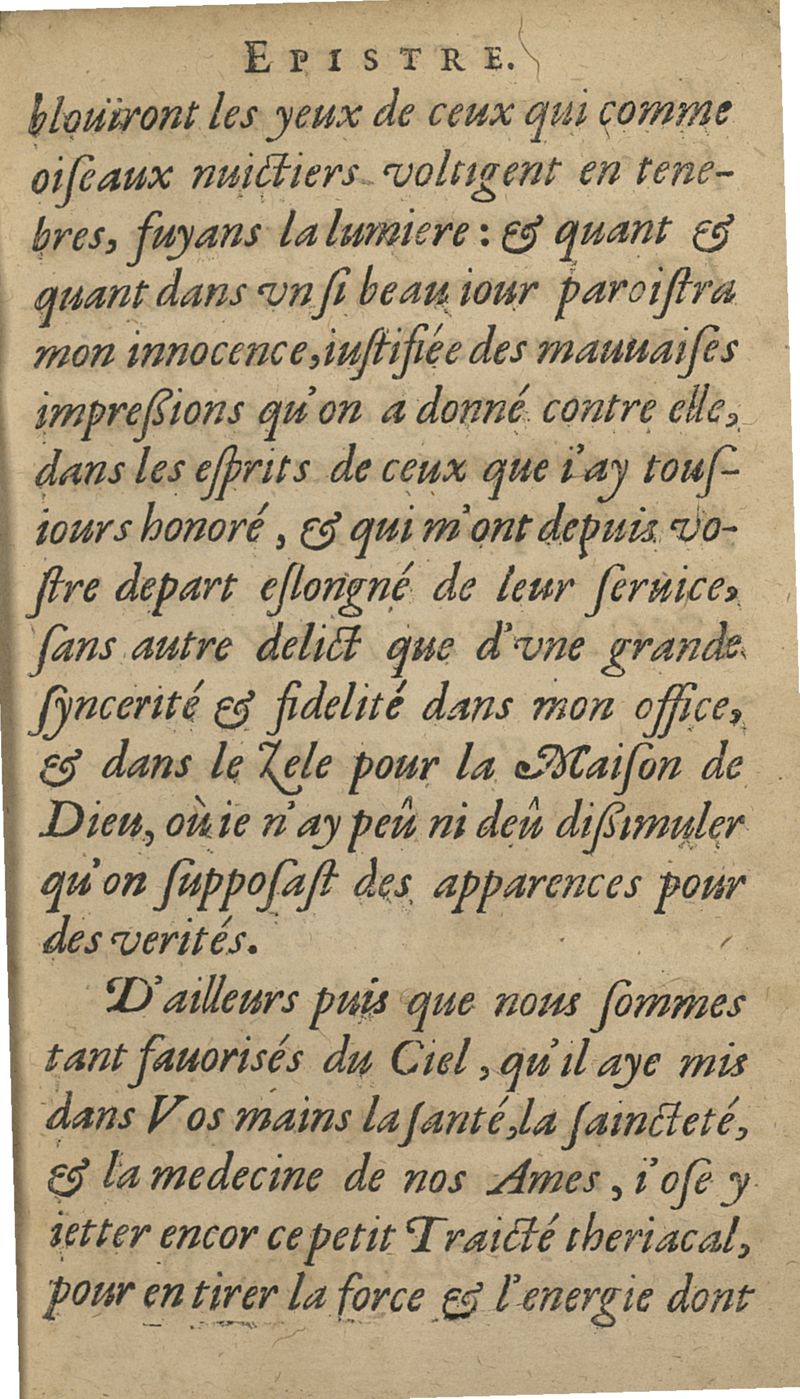 EPISTRE.
bloüiront les yeux de ceux qui comme
oiſeaux nuictiers voltigent en tene-
bres, fuyans la lumiere : & quant &
quant dans vn ſi beau iour paroiſtra
mon innocence, iuſtifiée des mauuaiſes
impreſſions qu'on a donné contre elle,
dans les eſprits de ceux que i'ay touſ-
iours honoré, & qui m'ont depuis vo-
ſtre depart eſlongné de leur ſeruice,
ſans autre delict que d'vne grande
ſyncerité & fidelité dans mon office,
& dans le Zele pour la Maiſon de
Dieu, où ie n'ay peû ni deû diſſimuler
qu'on ſuppoſaſt des apparences pour
des verités.
D'ailleurs puis que nous ſommes
tant fauorisés du Ciel, qu'il aye mis
dans Vos mains la ſanté, la ſaincteté,
& la medecine de nos Ames, i'oſe y
ietter encor ce petit Traicté theriacal,
pour en tirer la force & l'energie dont